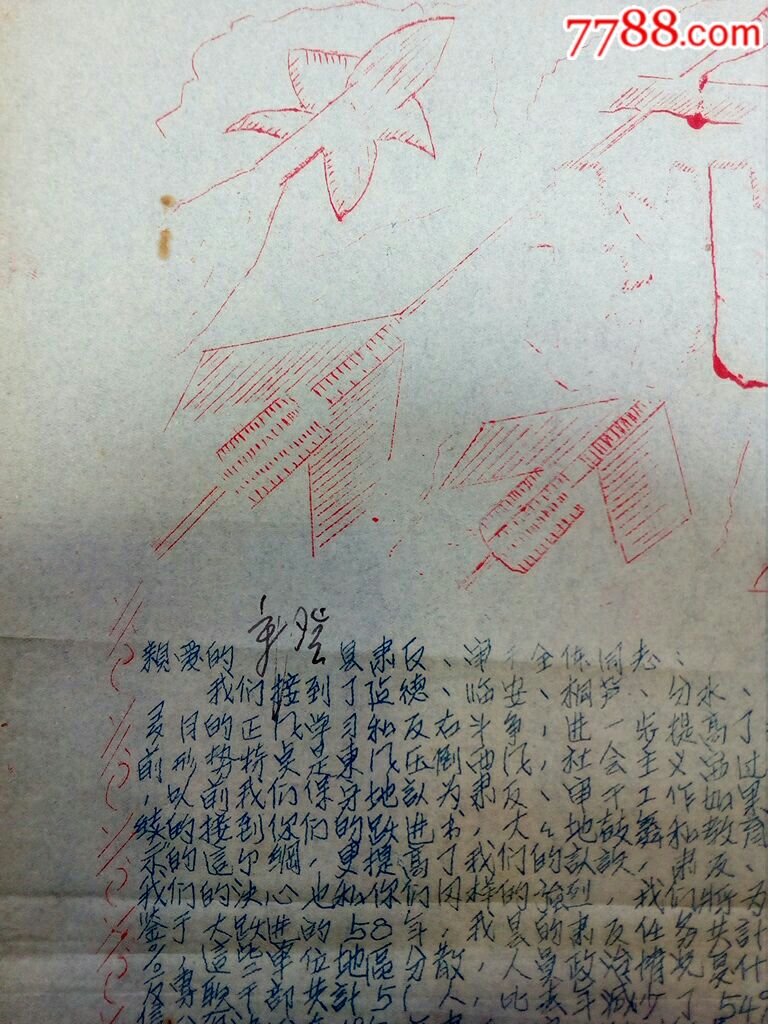 7788.com
新登
親爱的 县肃反、审干全体同志:
我们接到了建德、临安、桐芦、分水、
多月的正风学习和反右斗争,进一步提高了
前形势特点是東风压倒西风,社会主义
,以前我们保守地認为肃反、审干工作如果
续的接到你们的跃进书,大々地鼓舞和教育
示的這个綱,更提高了我们的認識,肃反、
我们的决心也和你们同样的強烈,我们將为
鉴于大跃进的58年,我县的肃反任务共計
%,這些单位地區分散,人員政治情况复什
及專职干部共計51人,比去年減少了54%